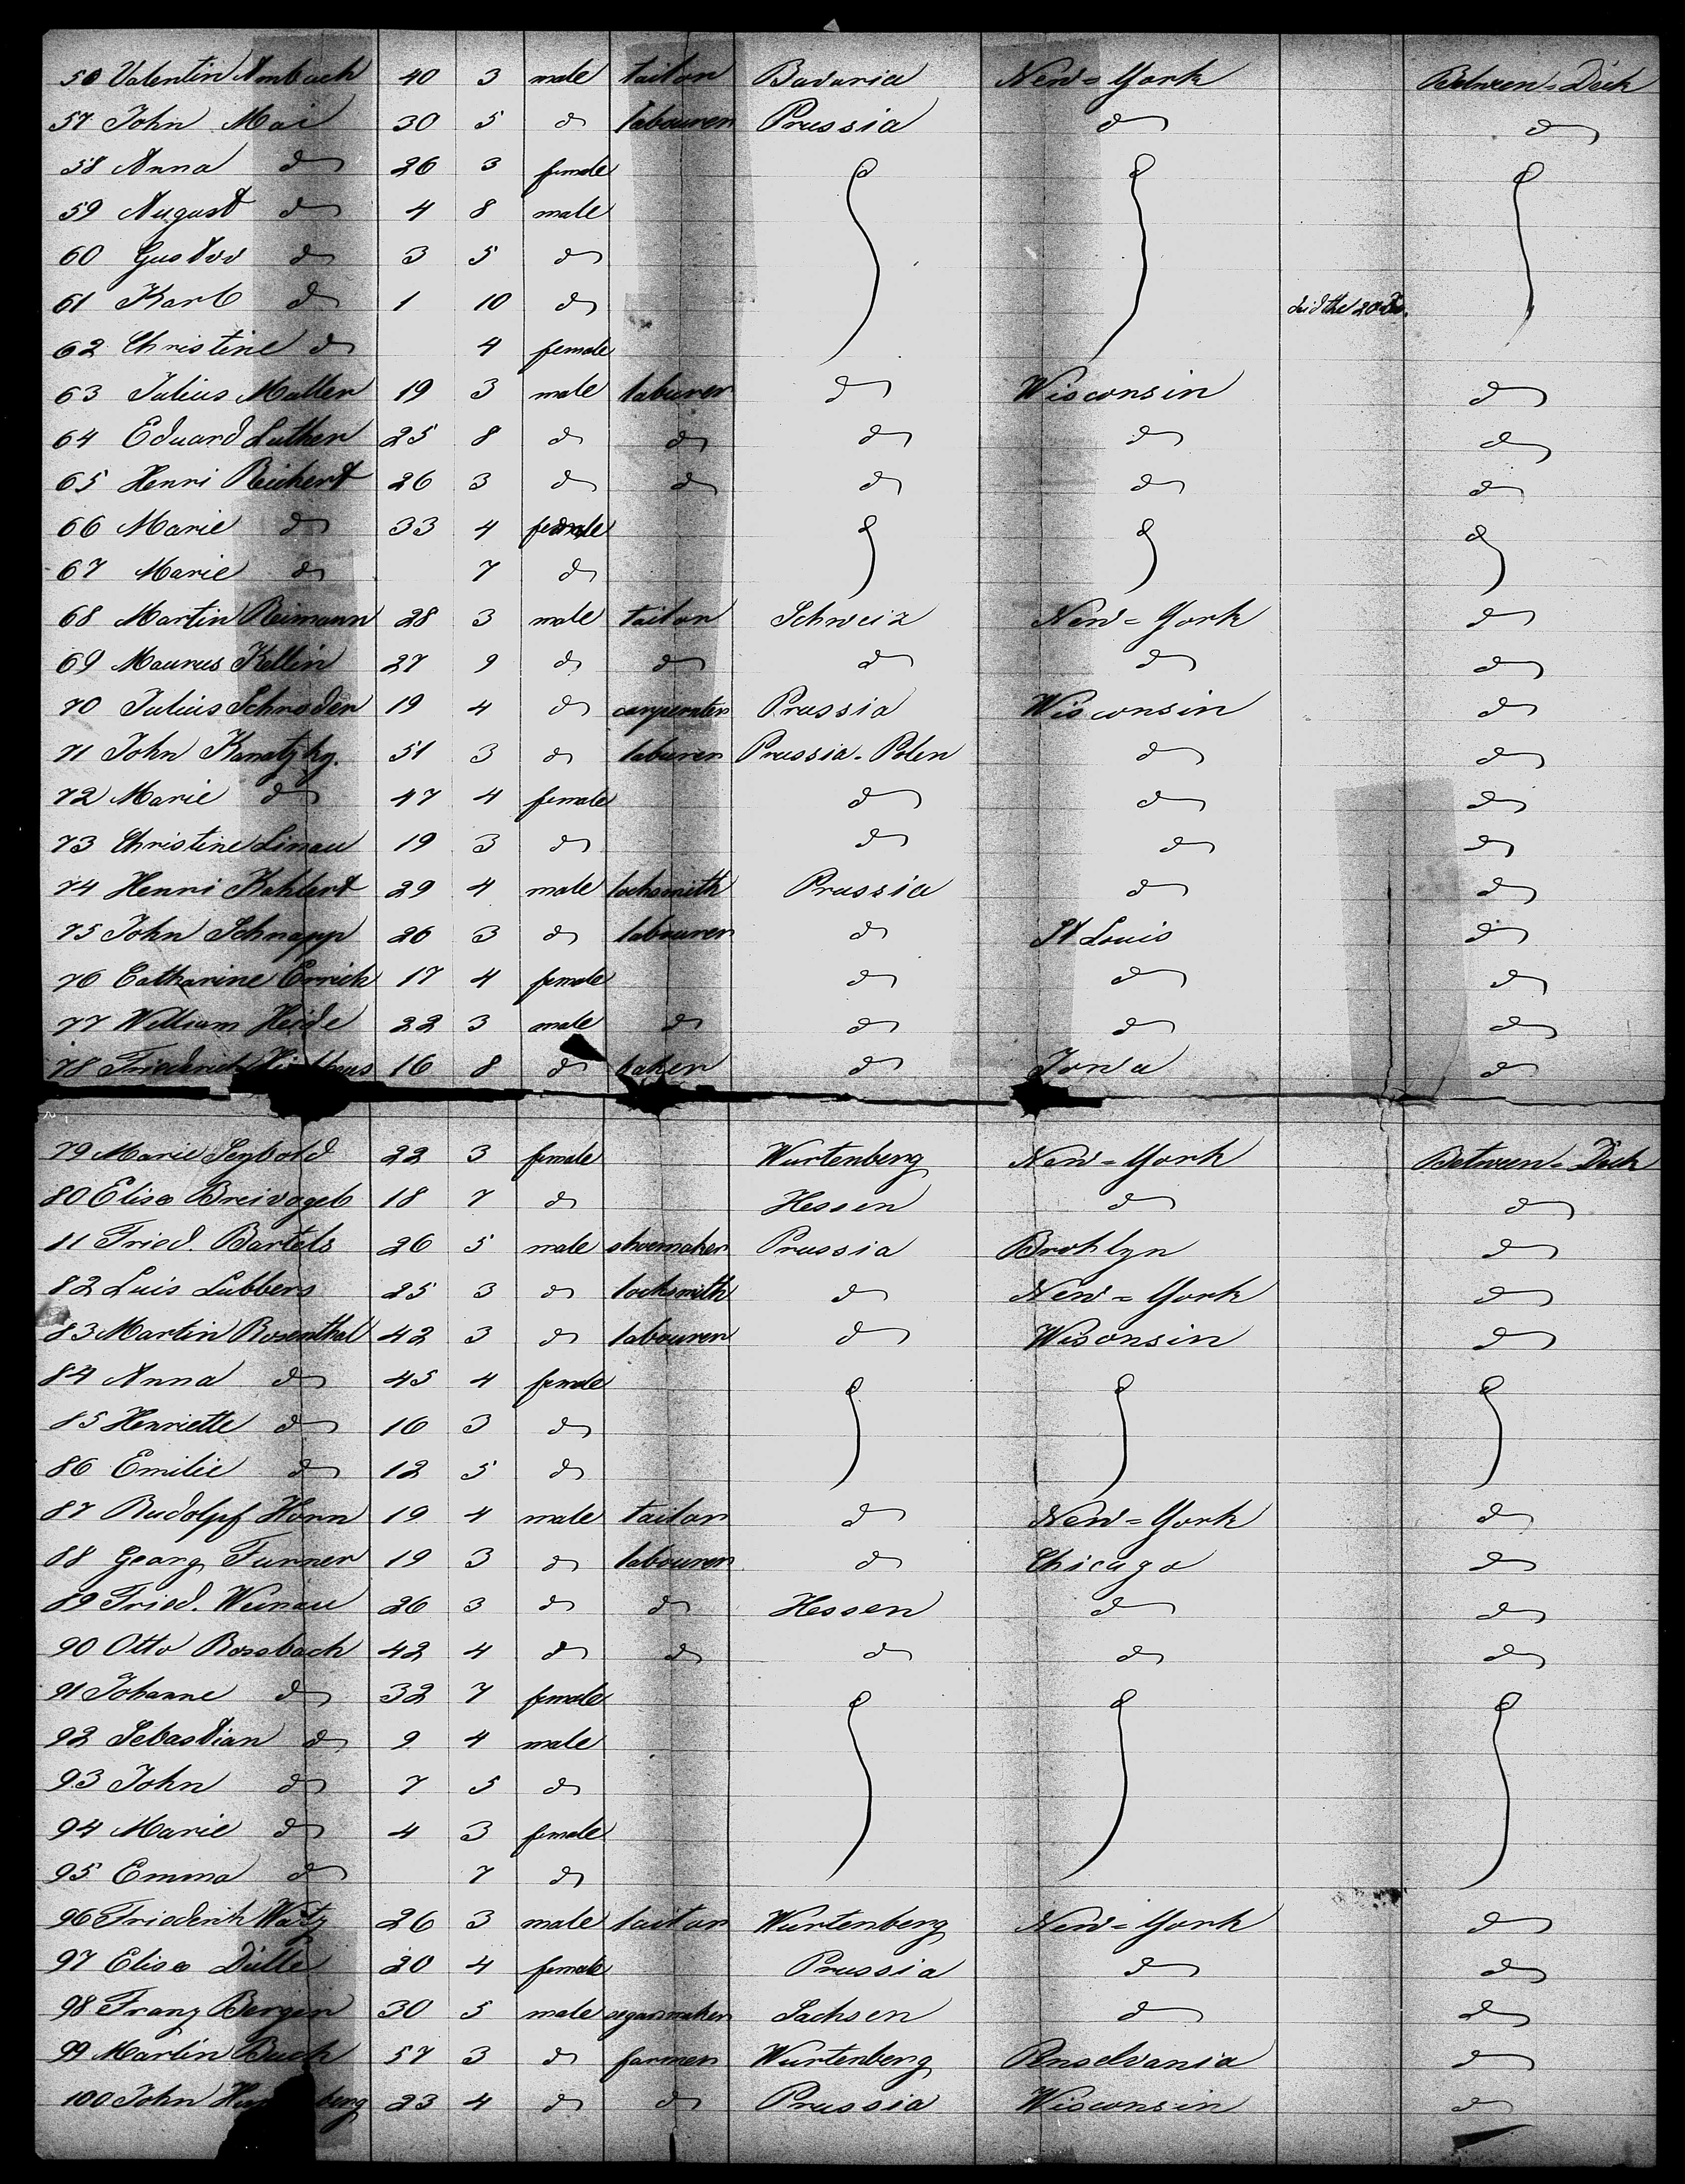 56 Valentin Ambach 40 3 male tailor Bavaria New=York Between=Deck
57 John Mai 30 5 do labourer Prussia do do
58 Anna do 26 3 female
59 August do 4 8 male
60 Gustav do 3 5 do
61 Karl do 1 10 do did the 20
62 Christine do 4 female
63 Julius Muller 19 3 male laburer do Wisconsin do
64 Eduard Luther 25 8 do do do do do
65 Henri Reichert 26 3 do do do do do
66 Marie do 33 4 female
67 Marie do 7 do
68 Martin Reimann 28 3 male tailor Schweiz New=York do
69 Maurus Kellin 27 9 do do do do do
70 Julius Schroder 19 4 do carpenter Prussia Wisconsin do
71 John Kanatzky. 51 3 do laburer Prussia-Polen do do
72 Marie do 47 4 female do do do
73 Christine Linau 19 3 do do do do
74 Henri Kahlert 29 4 male locksmith Prussia do do
75 John Schnapp 26 3 do labourer do St Louis do
76 Catharine Emrich 17 4 female do do do
77 William Heide 22 3 male do do do do
78 Friedrich 16 8 do baker do Iowa do
79 Marie Seybold 22 3 female Wurtenberg New=York Between=Deck
80 Elise Breivogel 18 7 do Hessen do do
81 Fried. Bartels 26 5 male shoemaker Prussia Brohlyn do
82 Luis Lubbers 25 3 do locksmith do New=York do
83 Martin Rosenthal 42 3 do labourer do Wisconsin do
84 Anna do 45 4 female
85 Henriette do 16 3 do
86 Emilie do 12 5 do
87 Rudolpf Horn 19 4 male tailor do New=York do
88 Georg Furner 19 3 do labourer do Chicago do
89 Fried. Weinau 26 3 do do Hessen do do
90 Otto Rossbach 42 4 do do do do do
91 Johanne do 32 7 female
92 Sebastian do 9 4 male
93 John do 7 5 do
94 Marie do 4 3 female
95 Emma do 7 do
96 Friederich Watz 26 3 male tailor Wurtenberg New=York do
97 Elise Dülle 20 4 female Prussia do do
98 Franz Berger 30 5 male segarmaker Sachsen do do
99 Martin Buch 57 3 do farmer Wurtenberg Penselvania do
100 John 23 4 do do Prussia Wisconsin do